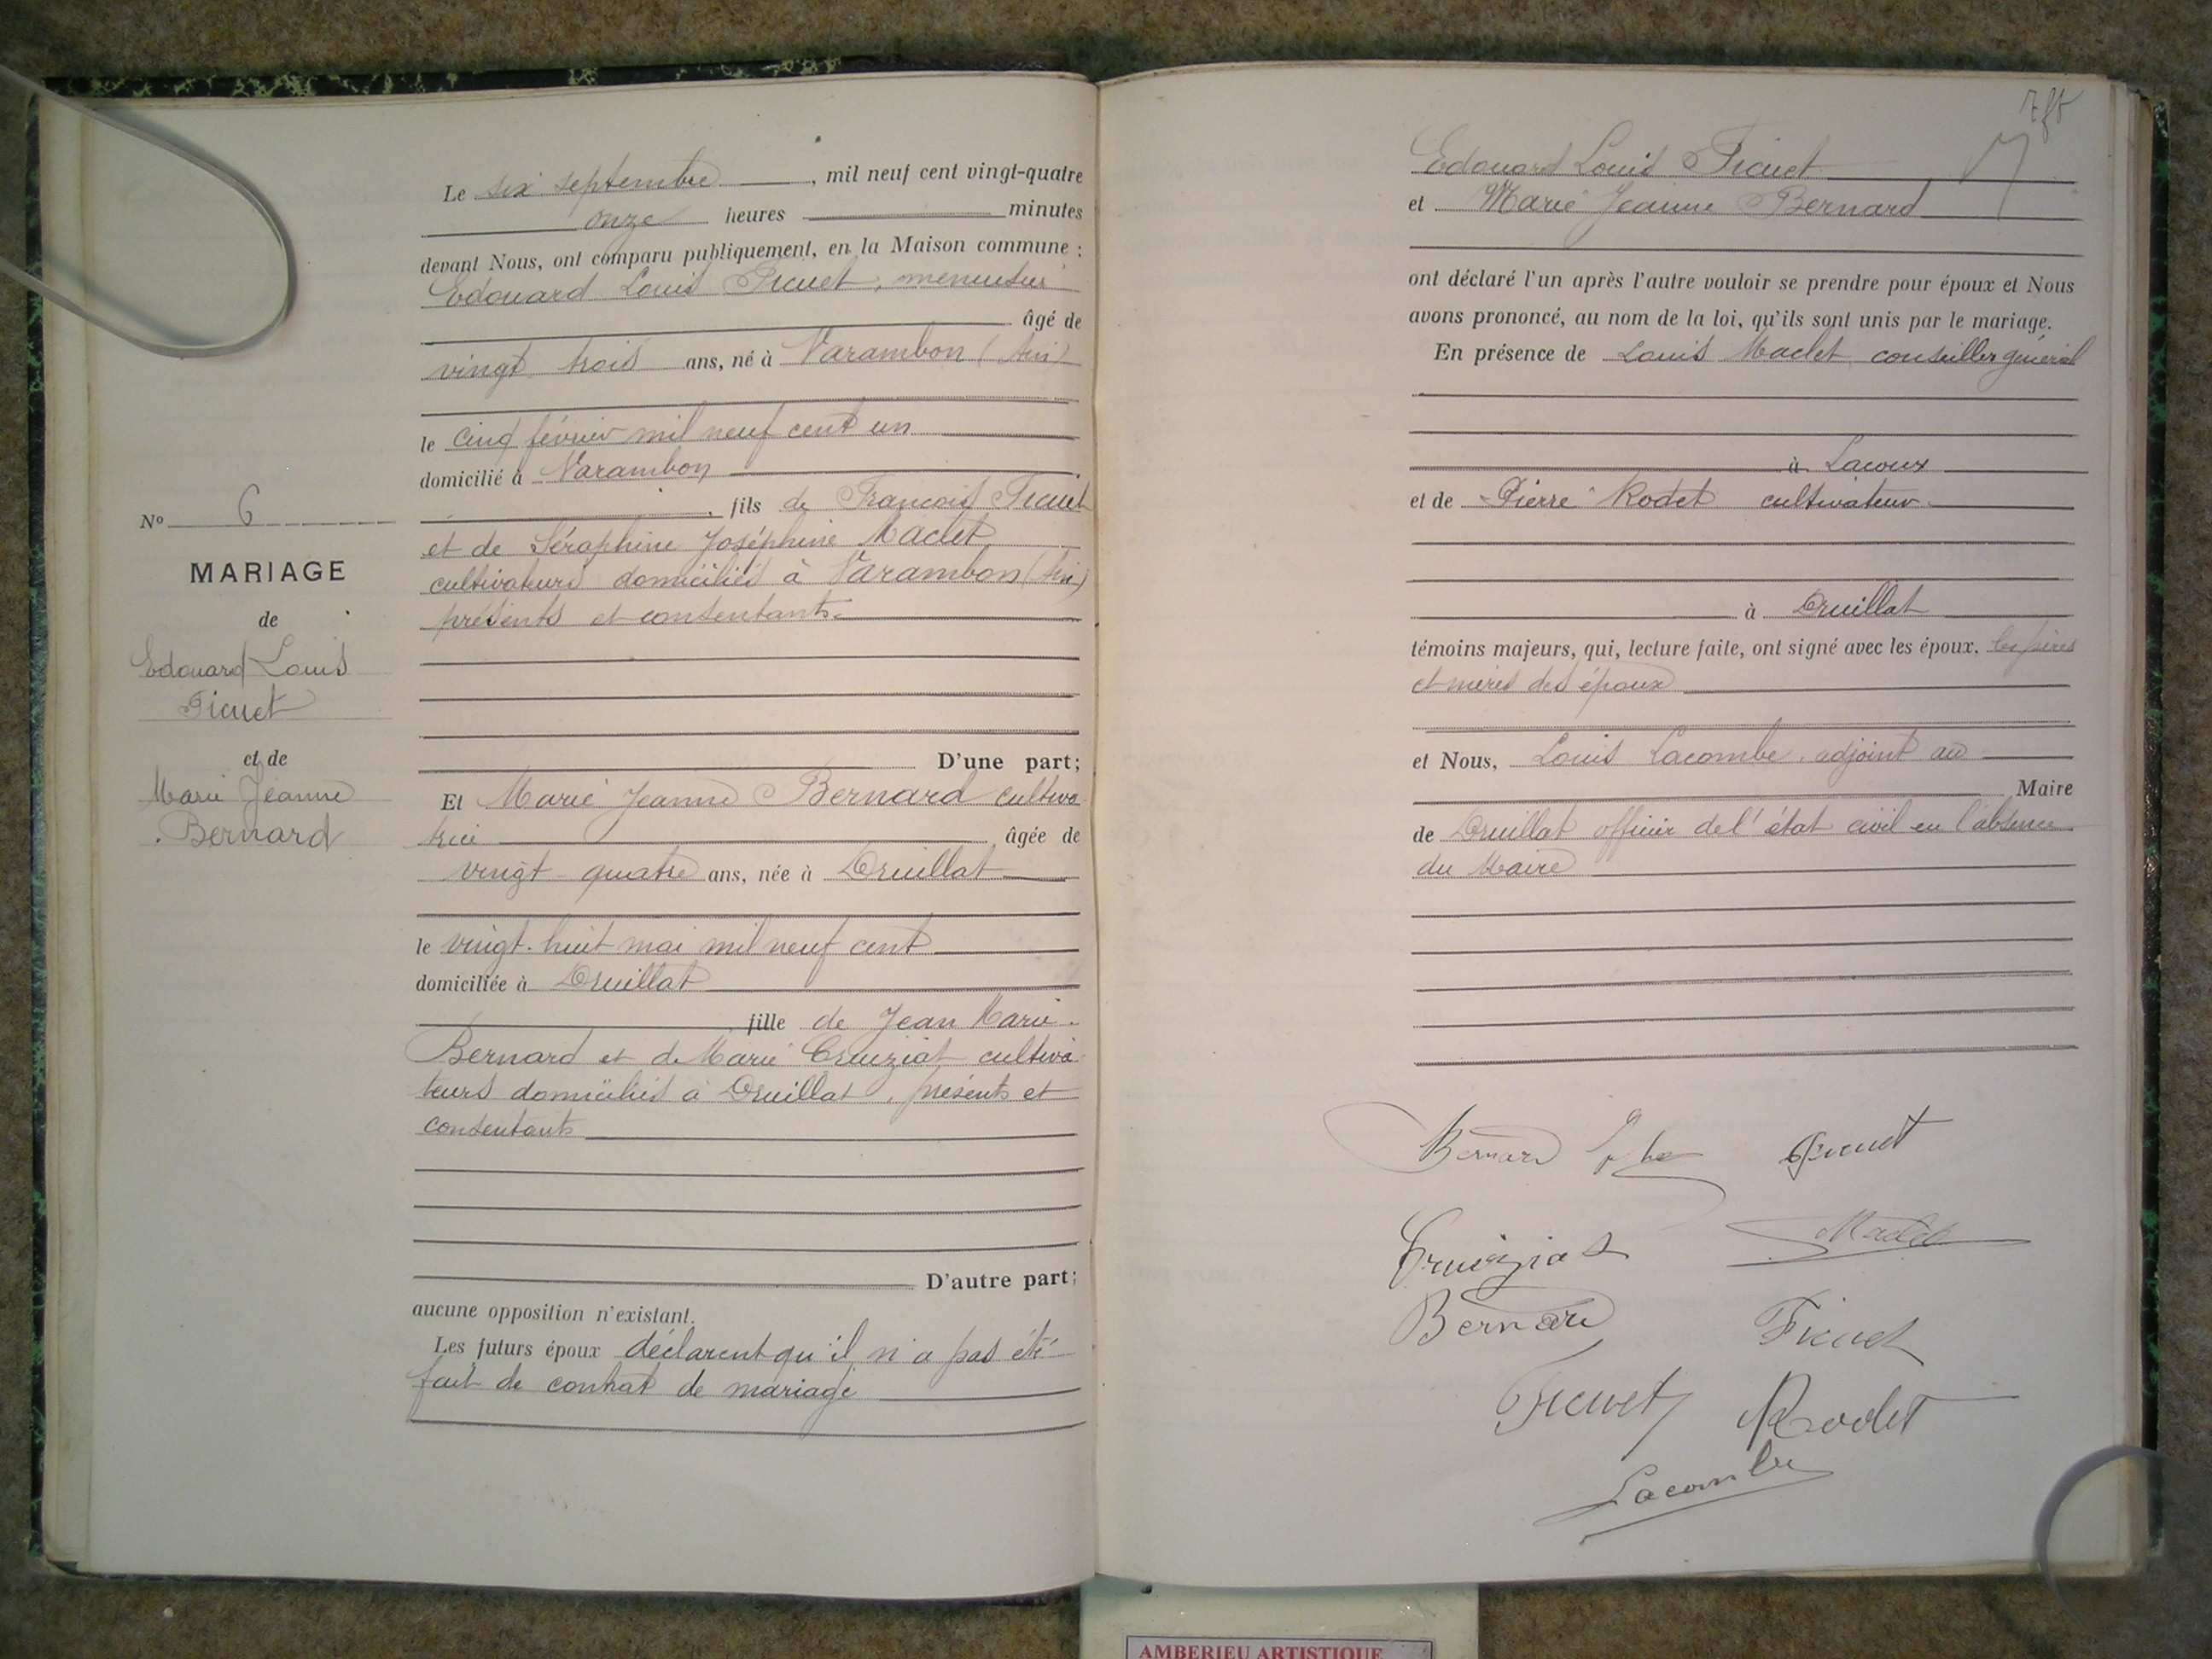 Le six septembre, mil neuf cent vingt-quatre
onze heures minutes
devant Nous, ont comparu publiquement, en la Maison commune :
Edouard Louis Ficuet, menuisier
âgé de
vingt trois ans, né à Varambon (Ain)
le cinq février mil neuf cent un
domicilié à Varambon
fils de François Ficuet
et de Séraphine Joséphine Maclet
cultivateurs domiciliés à Varambon (Ain)
présents et consentants.
D'une part;
Et Marie Jeanne Bernard cultiva
trice âgée de
vingt-quatre ans, née à Druillat
le vingt-huit mai mil neuf cent
domiciliée à Druillat
fille de Jean Marie
Bernard et de Marie Cruiziat cultiva
teurs domiciliés à Druillat, présents et
consentants
D'autre part;
aucune opposition n'existant.
Les futurs époux déclarent qu'il n'a pas été
fait de contrat de mariage
No 6
MARIAGE
de
Edouard Louis
Ficuet
et de
Marie Jeanne
Bernard
7
Edouard Louis Ficuet
et Marie Jeanne Bernard
ont déclaré l'un après l'autre vouloir se prendre pour époux et Nous
avons prononcé, au nom de la loi, qu'ils sont unis par le mariage.
En présence de Louis Maclet, conseiller général
à Lacoux
et de Pierre Rodet cultivateur
à Druillat
témoins majeurs, qui, lecture faite, ont signé avec les époux, les pères
et mères des époux
et Nous, Louis Lacombe, adjoint au
Maire
de Druillat officier de l'état civil en l'absence
du Maire
Bernard Ficuet
Cruiziat Maclet
Bernard Ficuet
Ficuet Rodet
Lacombe
AMBERIEU ARTISTIQUE